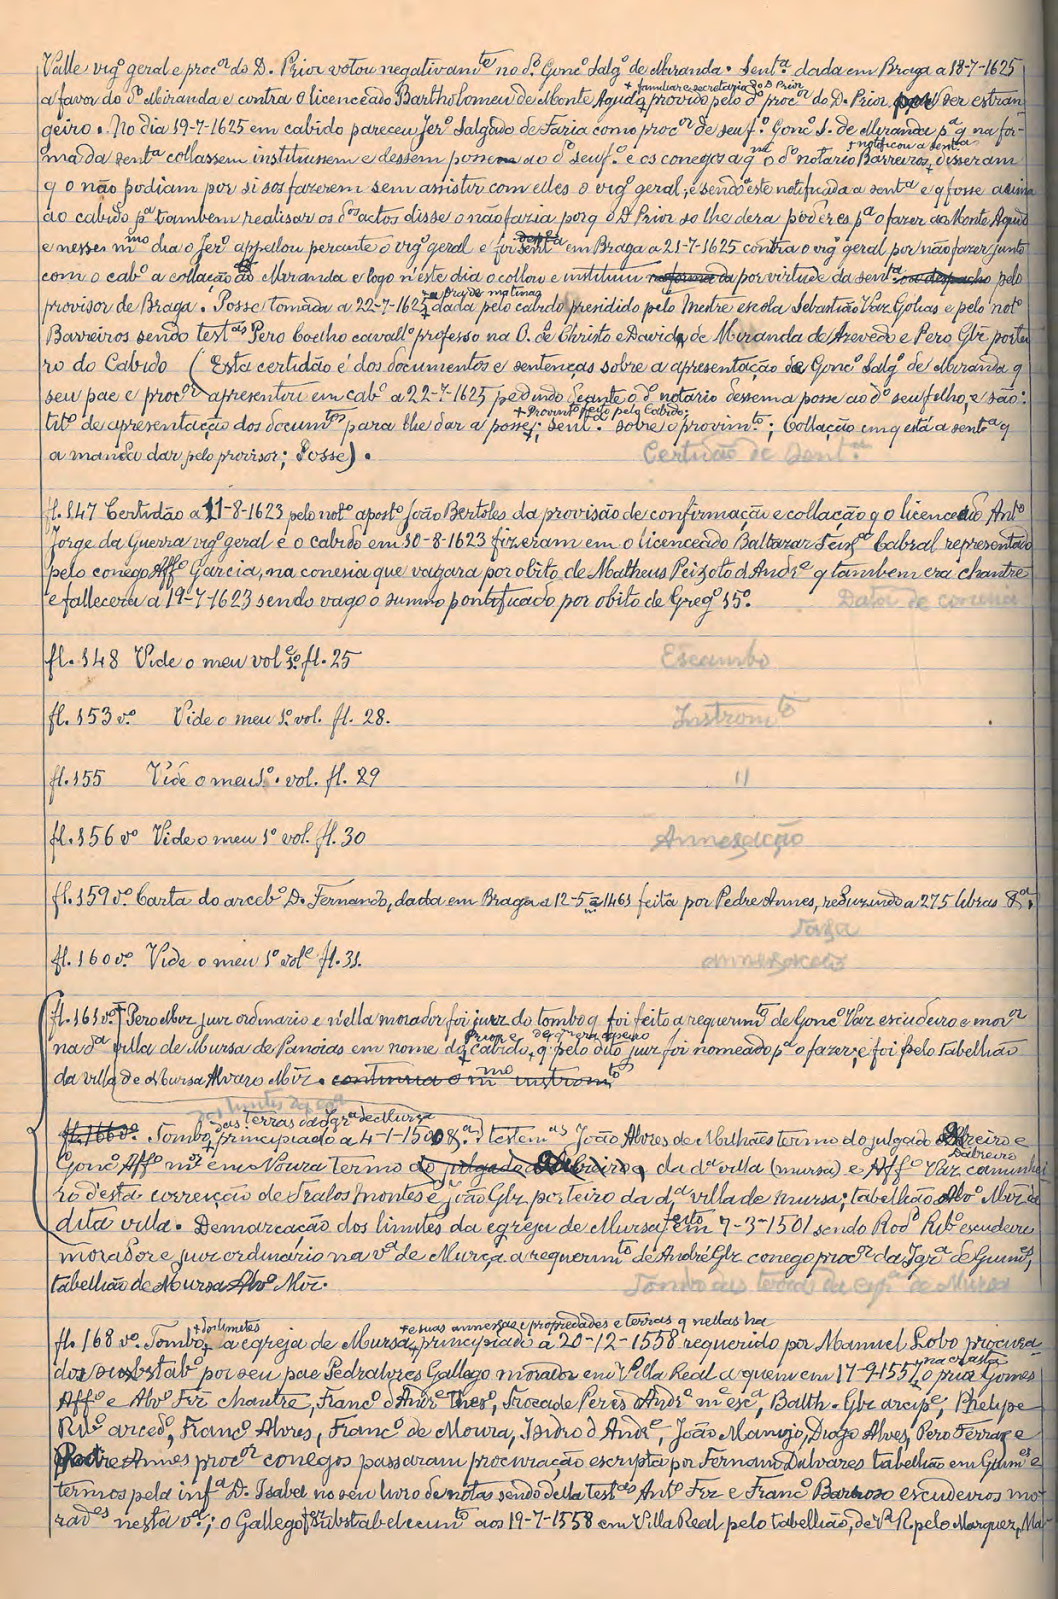 Valle vigº geral e procºr do D. Prior votou negativamte no dº Gonçº Salgº de Miranda. Sentª dada em Braga a 18-7-1625
+ familiar e secretario do D. Prior
a favor do dº Miranda e contra o licenceado Bartholomeu de Monte Agudo, provido pelo dº procºr do D. Prior, por ser estran
geiro. No dia 19-7-1625 em cabido pareceu Jerº Salgado de Faria como procºr de seu fº Gonçº S. de Miranda pª q na for-
+ notificou a sentª
ma da sentª collassem instituissem e dessem posse ao dº seu fº e os conegos a qm o dº notario Barreiros, disseram
q o não podiam por si sos fazerem sem assistir com elles o vigº geral, e sendo este notificado a sentª e q fosse acima
ao cabido pª tambem realisar os dºs actos disse o não faria porq o D. Prior so lhe dera poderes pª o fazer ao Monte Agudo
e nesse mmo dia o Jerº appellou perante o vigº geral e foi sentª em Braga a 21-7-1625 contra o vigº geral por não fazer junto
com o cabº a collação ao Miranda e logo n'este dia o collou e instituiu por virtude da sentª sou despacho pelo
provisor de Braga. Posse tomada a 22-7-1625 dada pelo cabido presidido pelo Mestre escola Sebastião Vaz Golias e pelo notº
Barreiros sendo testªs Pero Coelho cavallº professo na O. de Christo e David de Miranda de Azevedo e Pero Glz portei
ro do Cabido (Esta certidão é dos documentos e sentenças sobre a apresentação de Gonçº Salgº de Miranda q
seu pae e procºr apresentou em cabº a 22-7-1625 pedindo deante o dº notario dessem a posse ao dº seu filho, e são:
+ Provimto feito pelo Cabido;
titº de apresentação dos documtos para lhe dar a posse; sentª sobre o provimto; Collação em q está a sentª q
a manda dar pelo provisor; Posse).
Certidão de Sentª
fl. 147 Certidão a 11-8-1623 pelo notº apostº João Bertoles da provisão de confirmação e collação q o licenceado Antº
Jorge da Guerra vigº geral e o cabido em 10-8-1623 fizeram em o licenceado Baltazar Teixª Cabral representado
pelo conego Affº Garcia, na conesia que vagara por obito de Matheus Peixoto d'Andre q tambem era chantre
e fallecera a 19-7-1623 sendo vago o summo pontificado por obito de Gregº 15º.
fl. 148 Vide o meu vol 1º fl. 25
Escambo
fl. 153 vº Vide o meu 1º vol. fl. 28.
Instromto
fl. 155 Vide o meu 1º vol. fl. 29
"
fl. 156 vº Vide o meu 1º vol. fl. 30
Annexação
fl. 159 vº Carta do arcebº D. Fernando, dada em Braga a 12-5-1461 feita por Pedre Annes, reduzindo a 275 libras &ª.
Taxa
fl. 160 vº Vide o meu 1º vole fl. 31.
annexação
fl. 161 vº Pero Miz juiz ordinario e n'ella morador foi juiz do tombo q foi feito a requerimto de Gonçº Vaz escudeiro e morºr
na dª villa de Mursa de Panoias em nome do cabido, q pelo dito juiz foi nomeado pª o fazer; e foi pelo tabellião
da villa de Mursa Alvaro Miz. continua o mmo instromto
+ das terras da Igrª de Mursa
fl. 166 vº Tombo, principiado a 4-1-1500 &ª testemªs João Alvres de Milhães termo do julgado
Gonçº Affº mºr em Noura termo da dª villa (mursa) e Affº Vaz caminhei
ro desta correição de Tralos Montes e João Glz porteiro da dª villa de mursa; tabellião Alvº Miz da
dita villa. Demarcação dos limites da egreja de Mursa feito em 7-3-1501 sendo Rodº Ribº escudeiro
morador e juiz ordinario na vª de Murça a requerimto de André Glz conego procºr da Igrª de Guimes,
tabellião de Mursa Alvº Miz.
Tombo das terras da egrª de Mursa
+ dos limites + e suas annexas e propriedades e terras q nellas ha
fl. 168 vº Tombo, a egreja de Mursa, principiado a 20-12-1558 requerido por Manuel Lobo procura
dor substabº por seu pae Pedralvres Gallego morador em Villa Real a quem em 17-9-1557 o prior Gomes
Affº e Alvº Frz chantre, Francº d'Andre thesº, Frocade Peres d'Andre me escª, Balth. Glz arcipe, Phelipe
Ribº arcedº, Francº Alvres, Francº de Moura, Isidro d'Andre, João Manojo, Diogo Alves, Pero Ferraz e
Annes procºr conegos passaram procuração escripta por Fernam Dalvares tabellião em Guimes e
termos pela infª D. Isabel no seu livro de notas sendo della testªs Antº Frz e Francº Barboso escudeiros mo-
radºes nesta vª; o Gallego substabelecimto aos 19-7-1558 em Villa Real pelo tabellião, de Vª R. pelo Marquez, Ma-